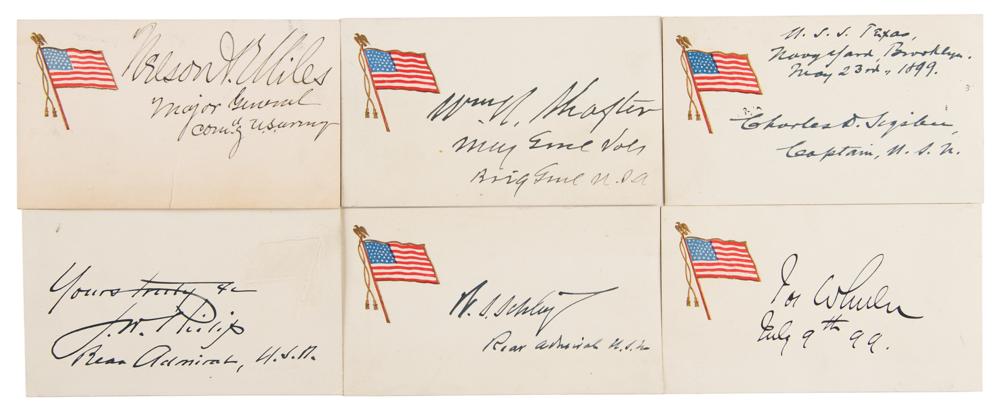 Nelson A. Miles
Major General
Com'd'g U.S. Army
Wm R. Shafter
Maj Genl Vols
Brig Genl U.S.A
U. S. S. Texas,
Navy Yard, Brooklyn.
May 23rd, 1899.
Charles D. Sigsbee,
Captain, U. S. N.
Yours truly &c
J. W. Philip
Rear Admiral, U.S.N.
W. S. Schley
Rear Admiral U.S.N
Jos Wheeler
July 9th 99.